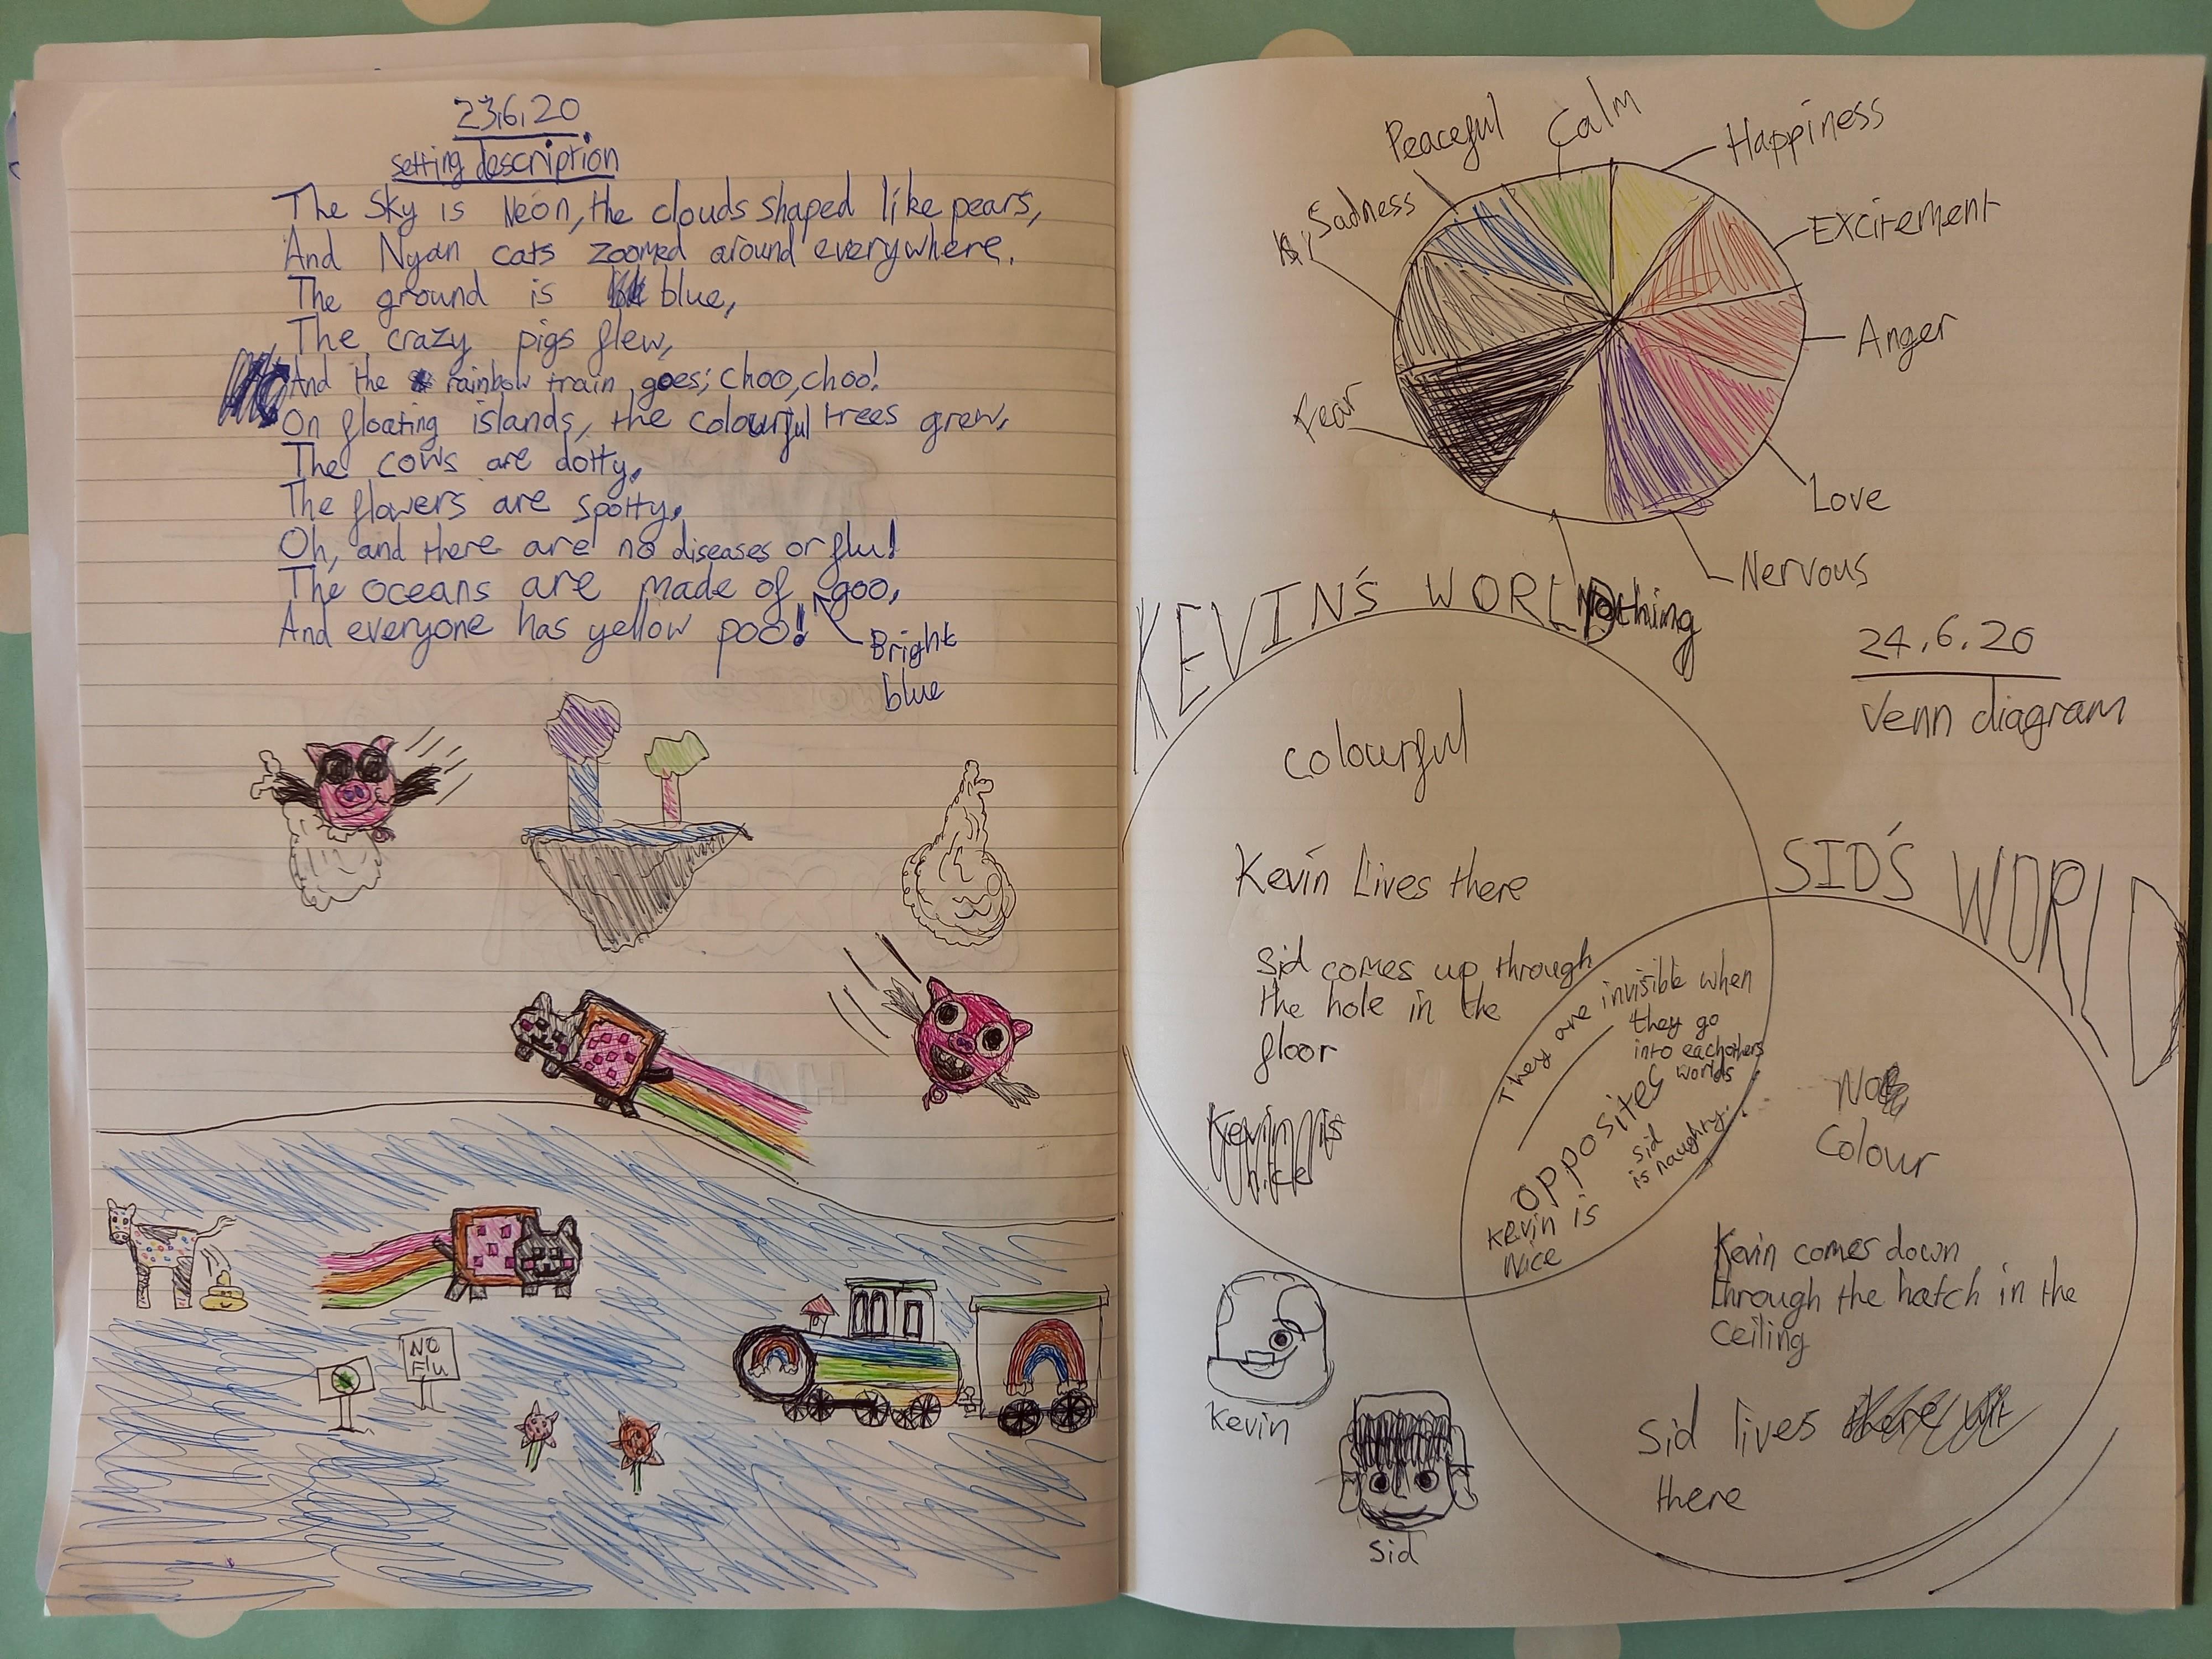 23.6.20
setting description
The Sky is Neon, the clouds shaped like pears,
And Nyan cats zoomed around everywhere.
The ground is blue,
The crazy pigs flew,
And the rainbow train goes; choo, choo!
On floating islands, the colourful trees grew,
The cows are dotty,
The flowers are spotty,
Oh, and there are no diseases or flu!
The oceans are made of goo,
And everyone has yellow poo!
Bright
blue
NO
Flu
Peaceful
Calm
Happiness
Sadness
Excitement
Anger
Fear
Love
Nervous
Nothing
KEVIN'S WORLD
24.6.20
Venn diagram
colourful
Kevin Lives there
Sid comes up through
the hole in the
floor
Kevin is
nice
They are invisible when
they go
into eachothers
worlds
opposites
Sid
is naughty.
Kevin is
Nice
SID'S WORLD
No
Colour
Kevin comes down
through the hatch in the
ceiling
Sid lives
there
Kevin
Sid